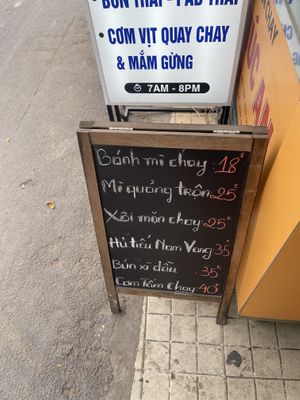 BÚN THÁI - PAD THÁI
CƠM VỊT QUAY CHAY
& MẮM GỪNG
7AM - 8PM
Bánh mì chay: 18đ
Mì quảng trộn: 25đ
Xôi mặn chay: 25đ
Hủ tiếu Nam Vang: 35đ
Bún xì dầu: 35đ
Cơm Tấm Chay: 40đ